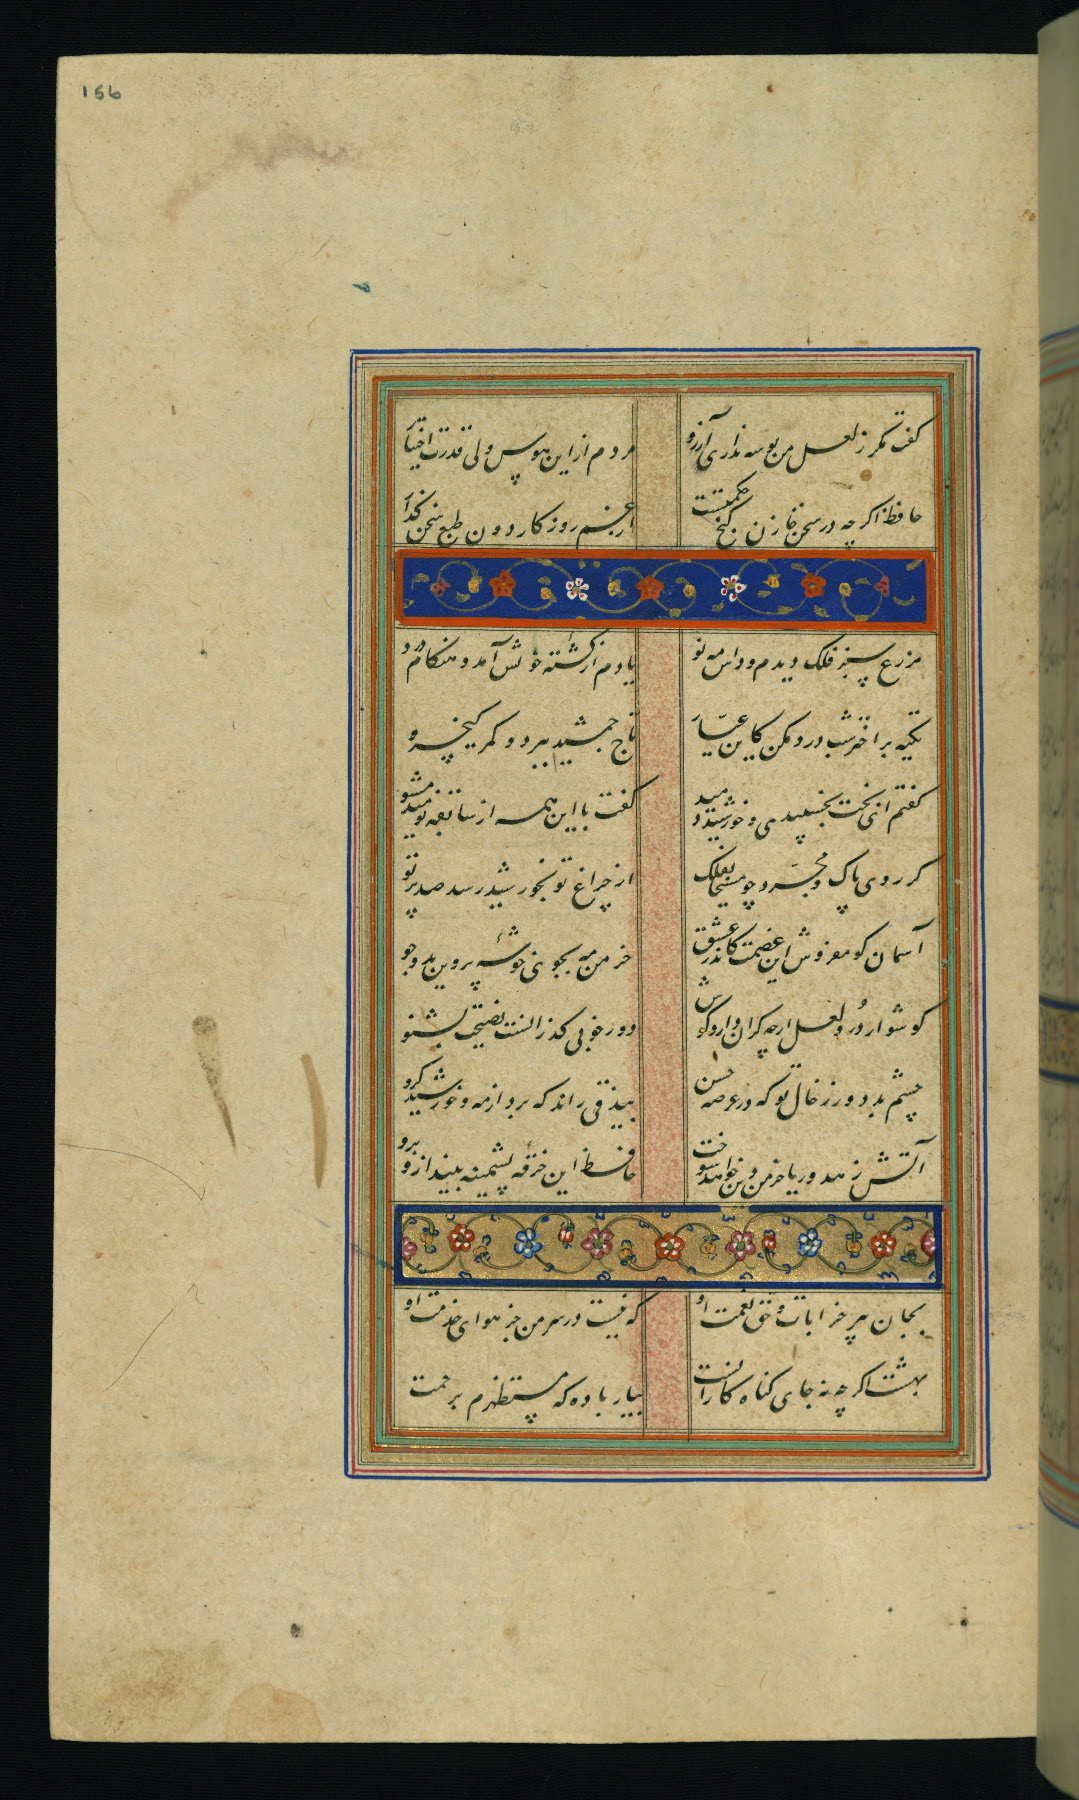 156
گفت مگر ز لعل من بوسه نداری آرزو
مردم از این هوس ولی قدرت اختیار
حافظ اگر چه در سخن خازن گنج حکمتست
از غم روزگار دون طبع سخن گذار
مزرع سبز فلک دیدم و داس مه نو
یادم از کشته خویش آمد و هنگام درو
تکیه بر اختر شب درد مکن کاین عیار
تاج جمشید ببرد و کمر کیخسرو
گفتم ای بخت بخسپیدی و خورشید دمید
گفت با این همه از سابقه نومید مشو
گر روی پاک و مجرد چو مسیحا بفلک
از چراغ تو بخورشید رسد صد پرتو
آسمان گو مفروش این عظمت کاندر عشق
خرمن مه بجوی خوشه پروین بدو جو
گوشوار در و لعل ارچه گران دارد گوش
دور خوبی گذرانست نصیحت بشنو
چشم بد دور ز خال تو که در عرصه حسن
بیذقی راند که برد از مه و خورشید گرو
آتش زهد و ریا خرمن دین خواهد سوخت
حافظ این خرقه پشمینه بینداز و برو
بجان پیر خرابات و حق نعمت او
که نیست در سر من جز هوای خدمت او
بهشت اگر چه نه جای گناه کارانست
بیار باده که مستظهرم برحمت